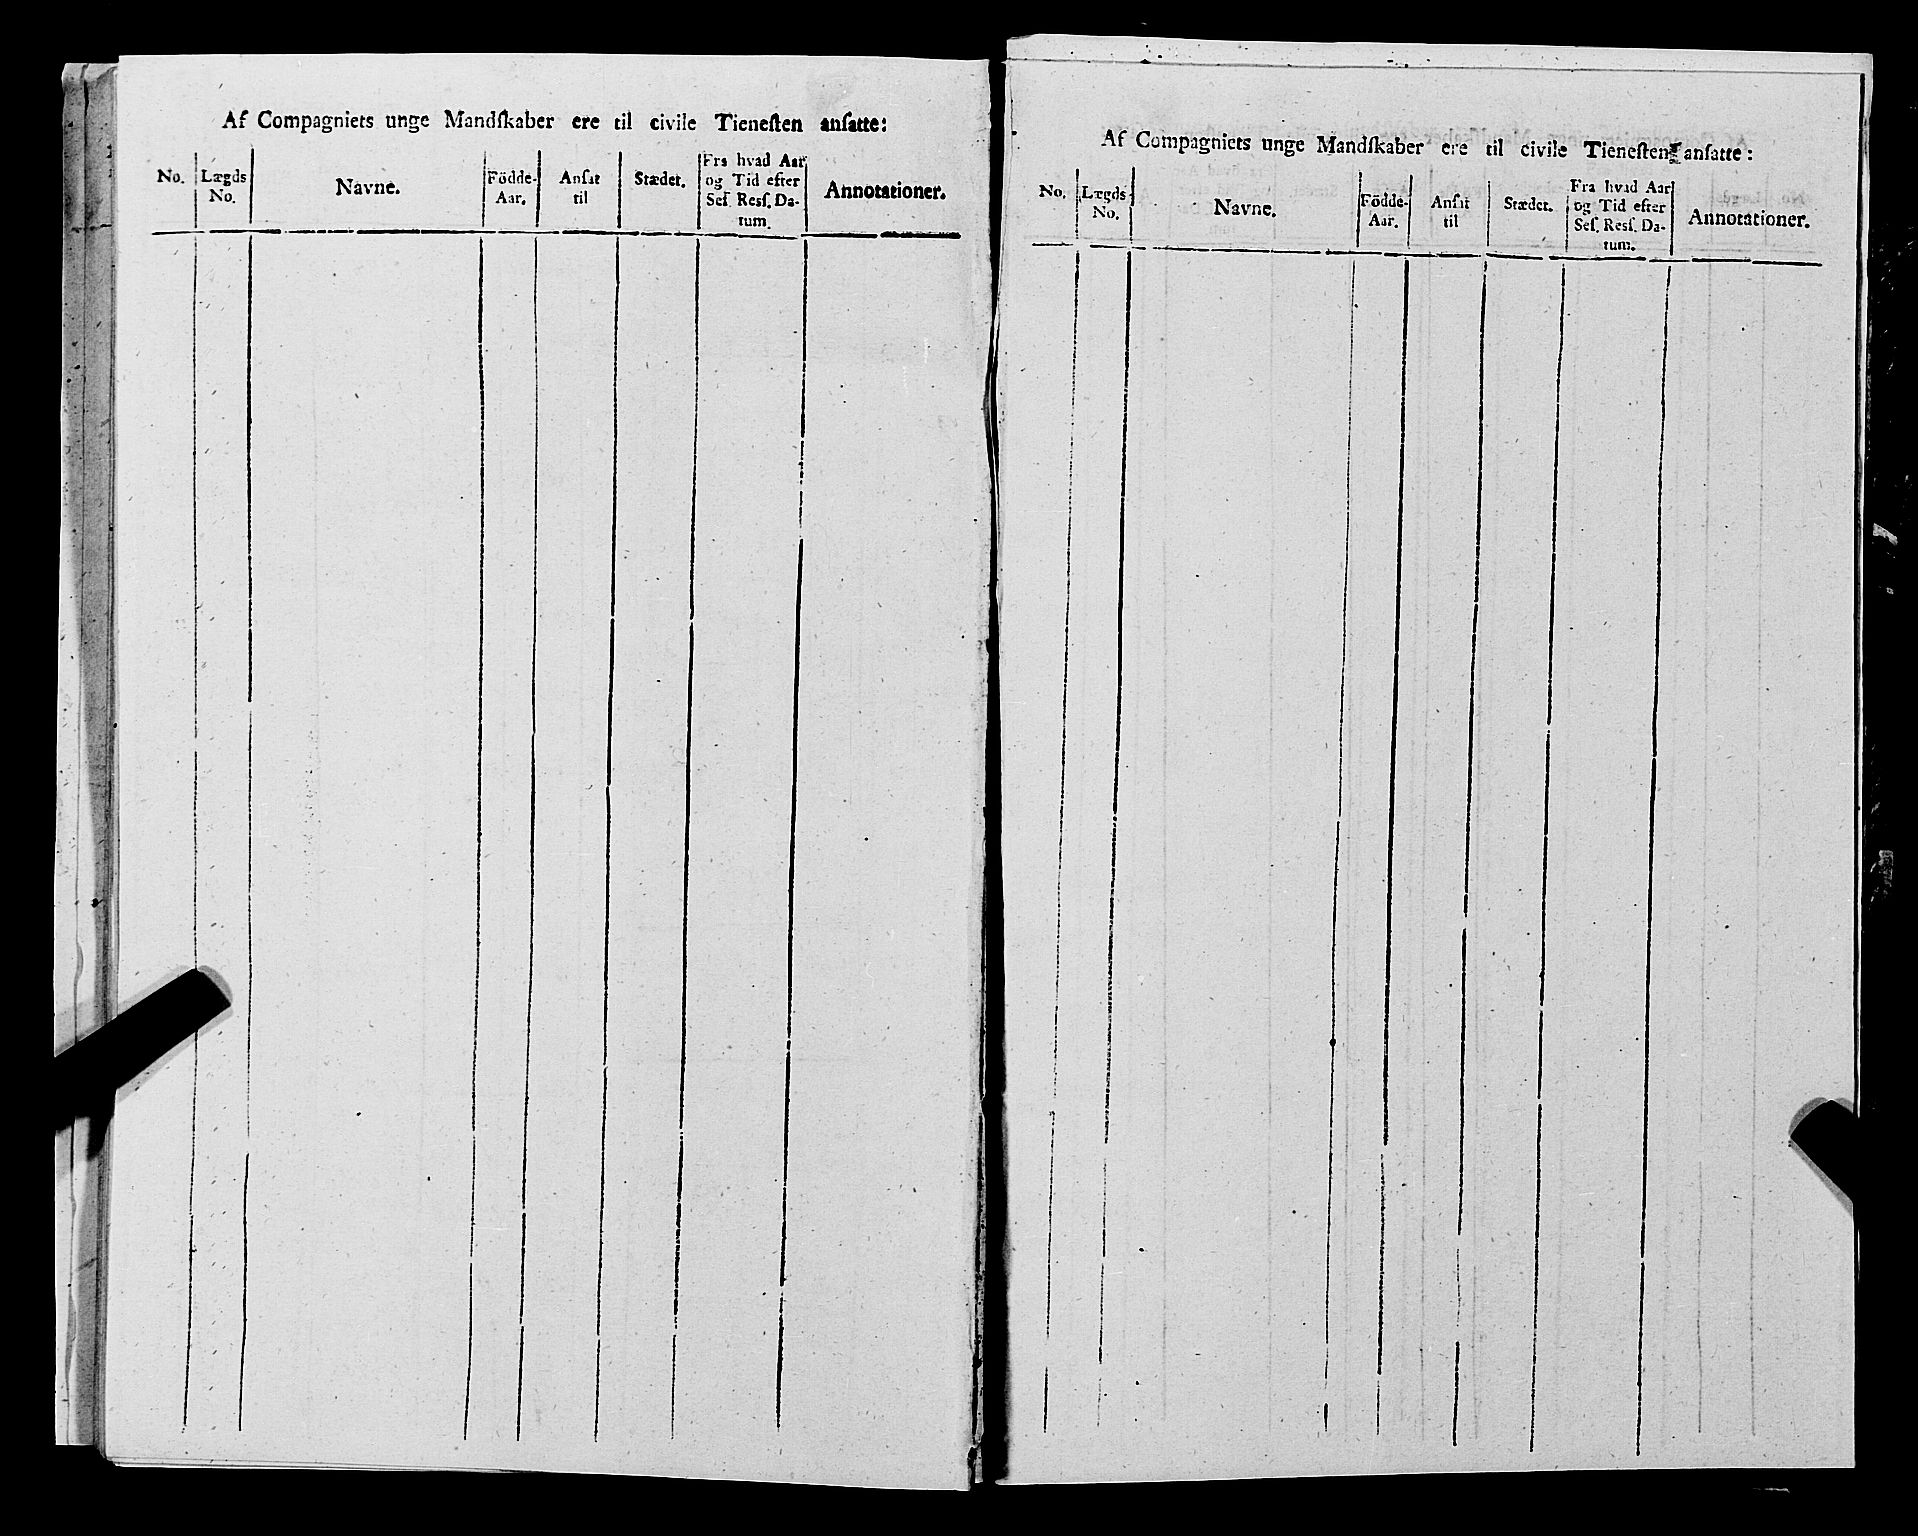 Af Compagniets unge Mandſkaber ere til civile Tieneſten anſatte:
No.
Lægds
No.
Navne.
Födde-
Aar.
Anſat
til
Stædet.
Fra hvad Aar
og Tid efter
Seſ. Resſ. Da-
tum.
Annotationer.
Af Compagniets unge Mandſkaber ere til civile Tieneſten anſatte:
No.
Lægds
No.
Navne.
Födde-
Aar.
Anſat
til
Stædet.
Fra hvad Aar
og Tid efter
Seſ. Resſ. Da-
tum.
Annotationer.